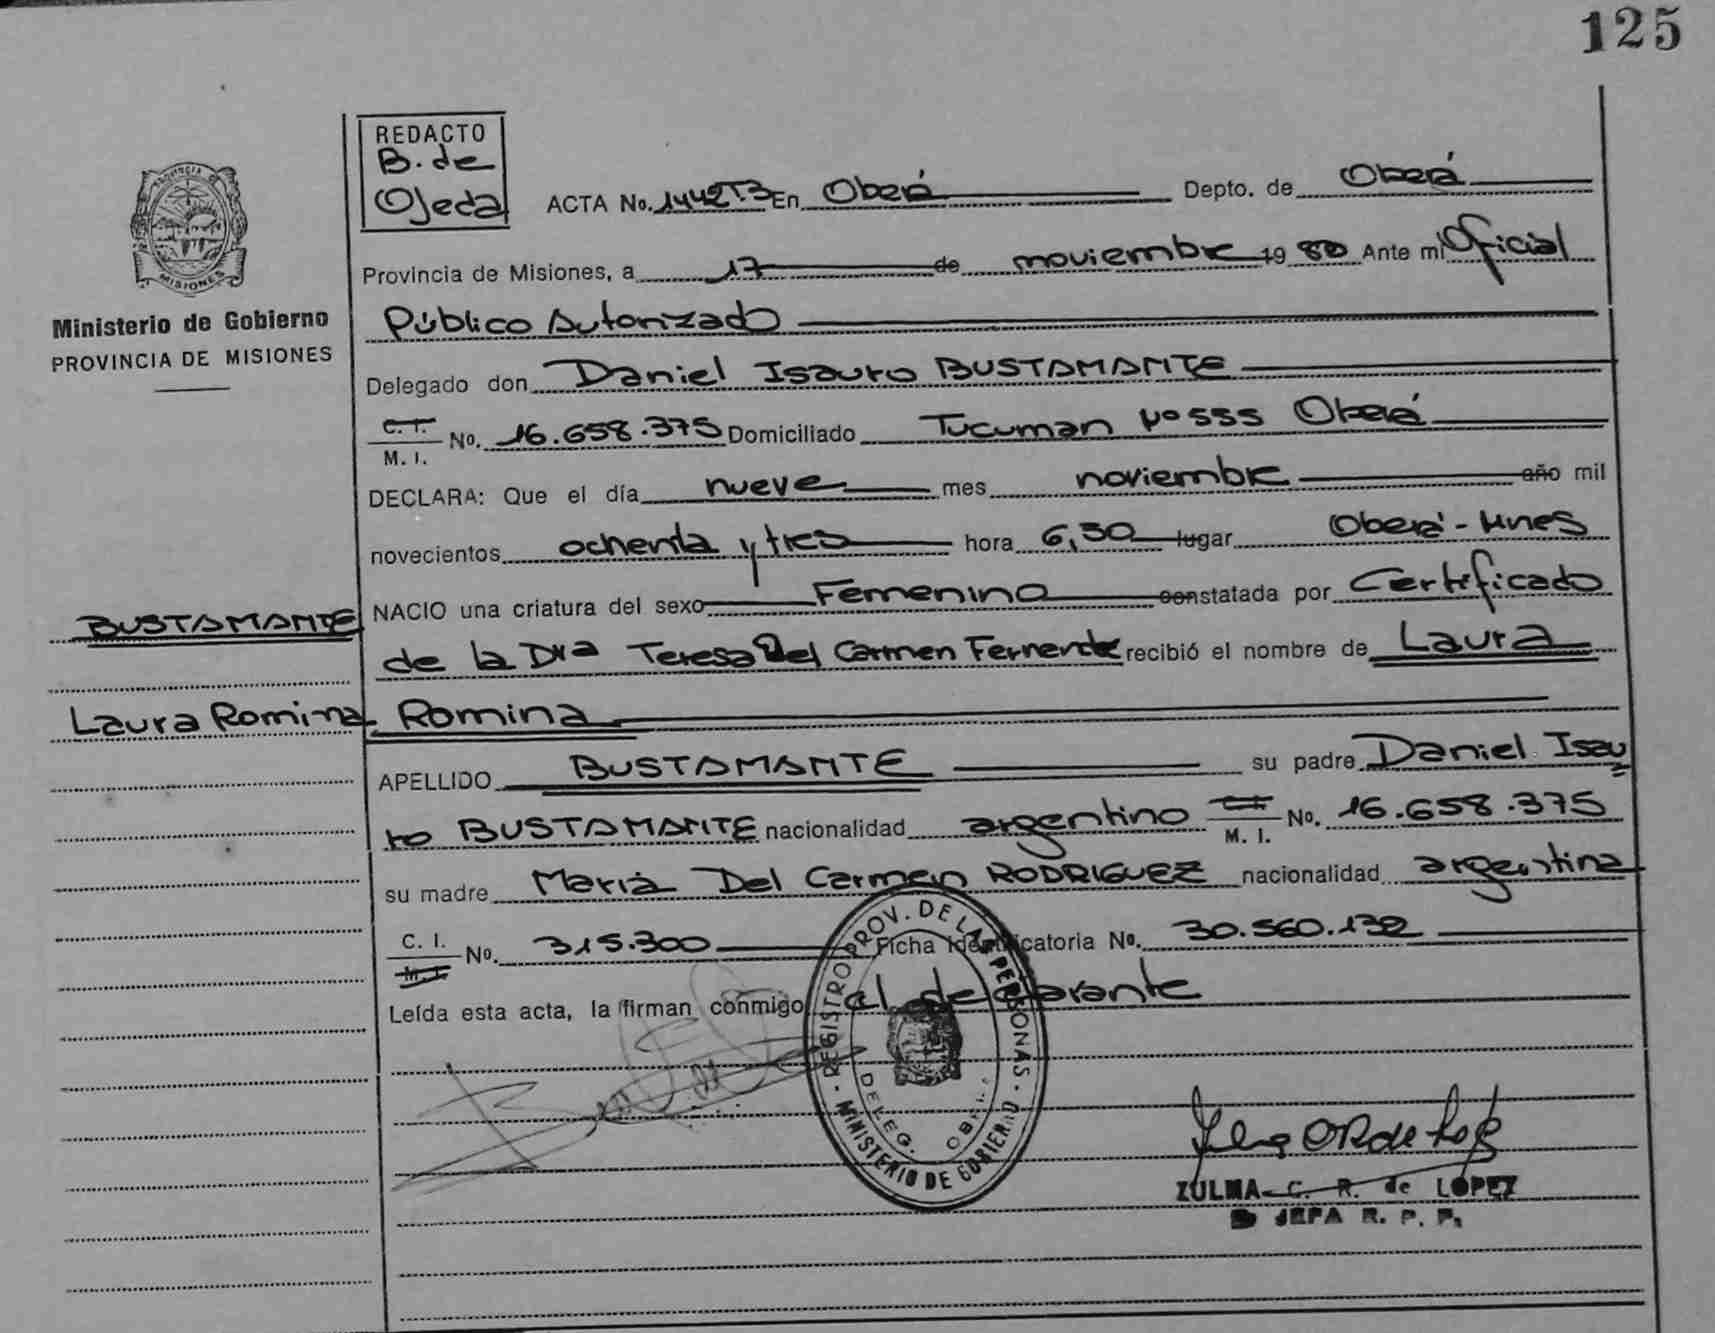 125
REDACTO
B. de
Ojeda
ACTA No. 1442T3 En Oberá Depto. de Oberá
Provincia de Misiones, a 17 de noviembre 19 Ante mi Oficial
Público Autorizado
Ministerio de Gobierno
PROVINCIA DE MISIONES
Delegado don Daniel Isauro BUSTAMANTE
C. I.
M. I. No. 16.658.375 Domiciliado Tucuman Nº 555 Oberá
DECLARA: Que el día nueve mes noviembre año mil
novecientos ochenta y tres hora 6,30 lugar Oberá - Mnes
NACIO una criatura del sexo Femenino constatada por Certificado
BUSTAMANTE
de la Dra Teresa Del Carmen recibió el nombre de Laura
Laura Romina
Romina
APELLIDO BUSTAMANTE su padre Daniel Isau
ro BUSTAMANTE nacionalidad argentino C. I.
M. I. No. 16.658.375
su madre María Del Carmen RODRIGUEZ nacionalidad argentina
C. I.
M. I. No. 315.300 Ficha Identificatoria No. 30.560.132
Leída esta acta, la firman conmigo el declarante
REGISTRO PROV. DE LAS PERSONAS - MINISTERIO DE GOBIERNO
DELEG. OBERA
ZULMA C. R. de LOPEZ
JEFA R. P. P.